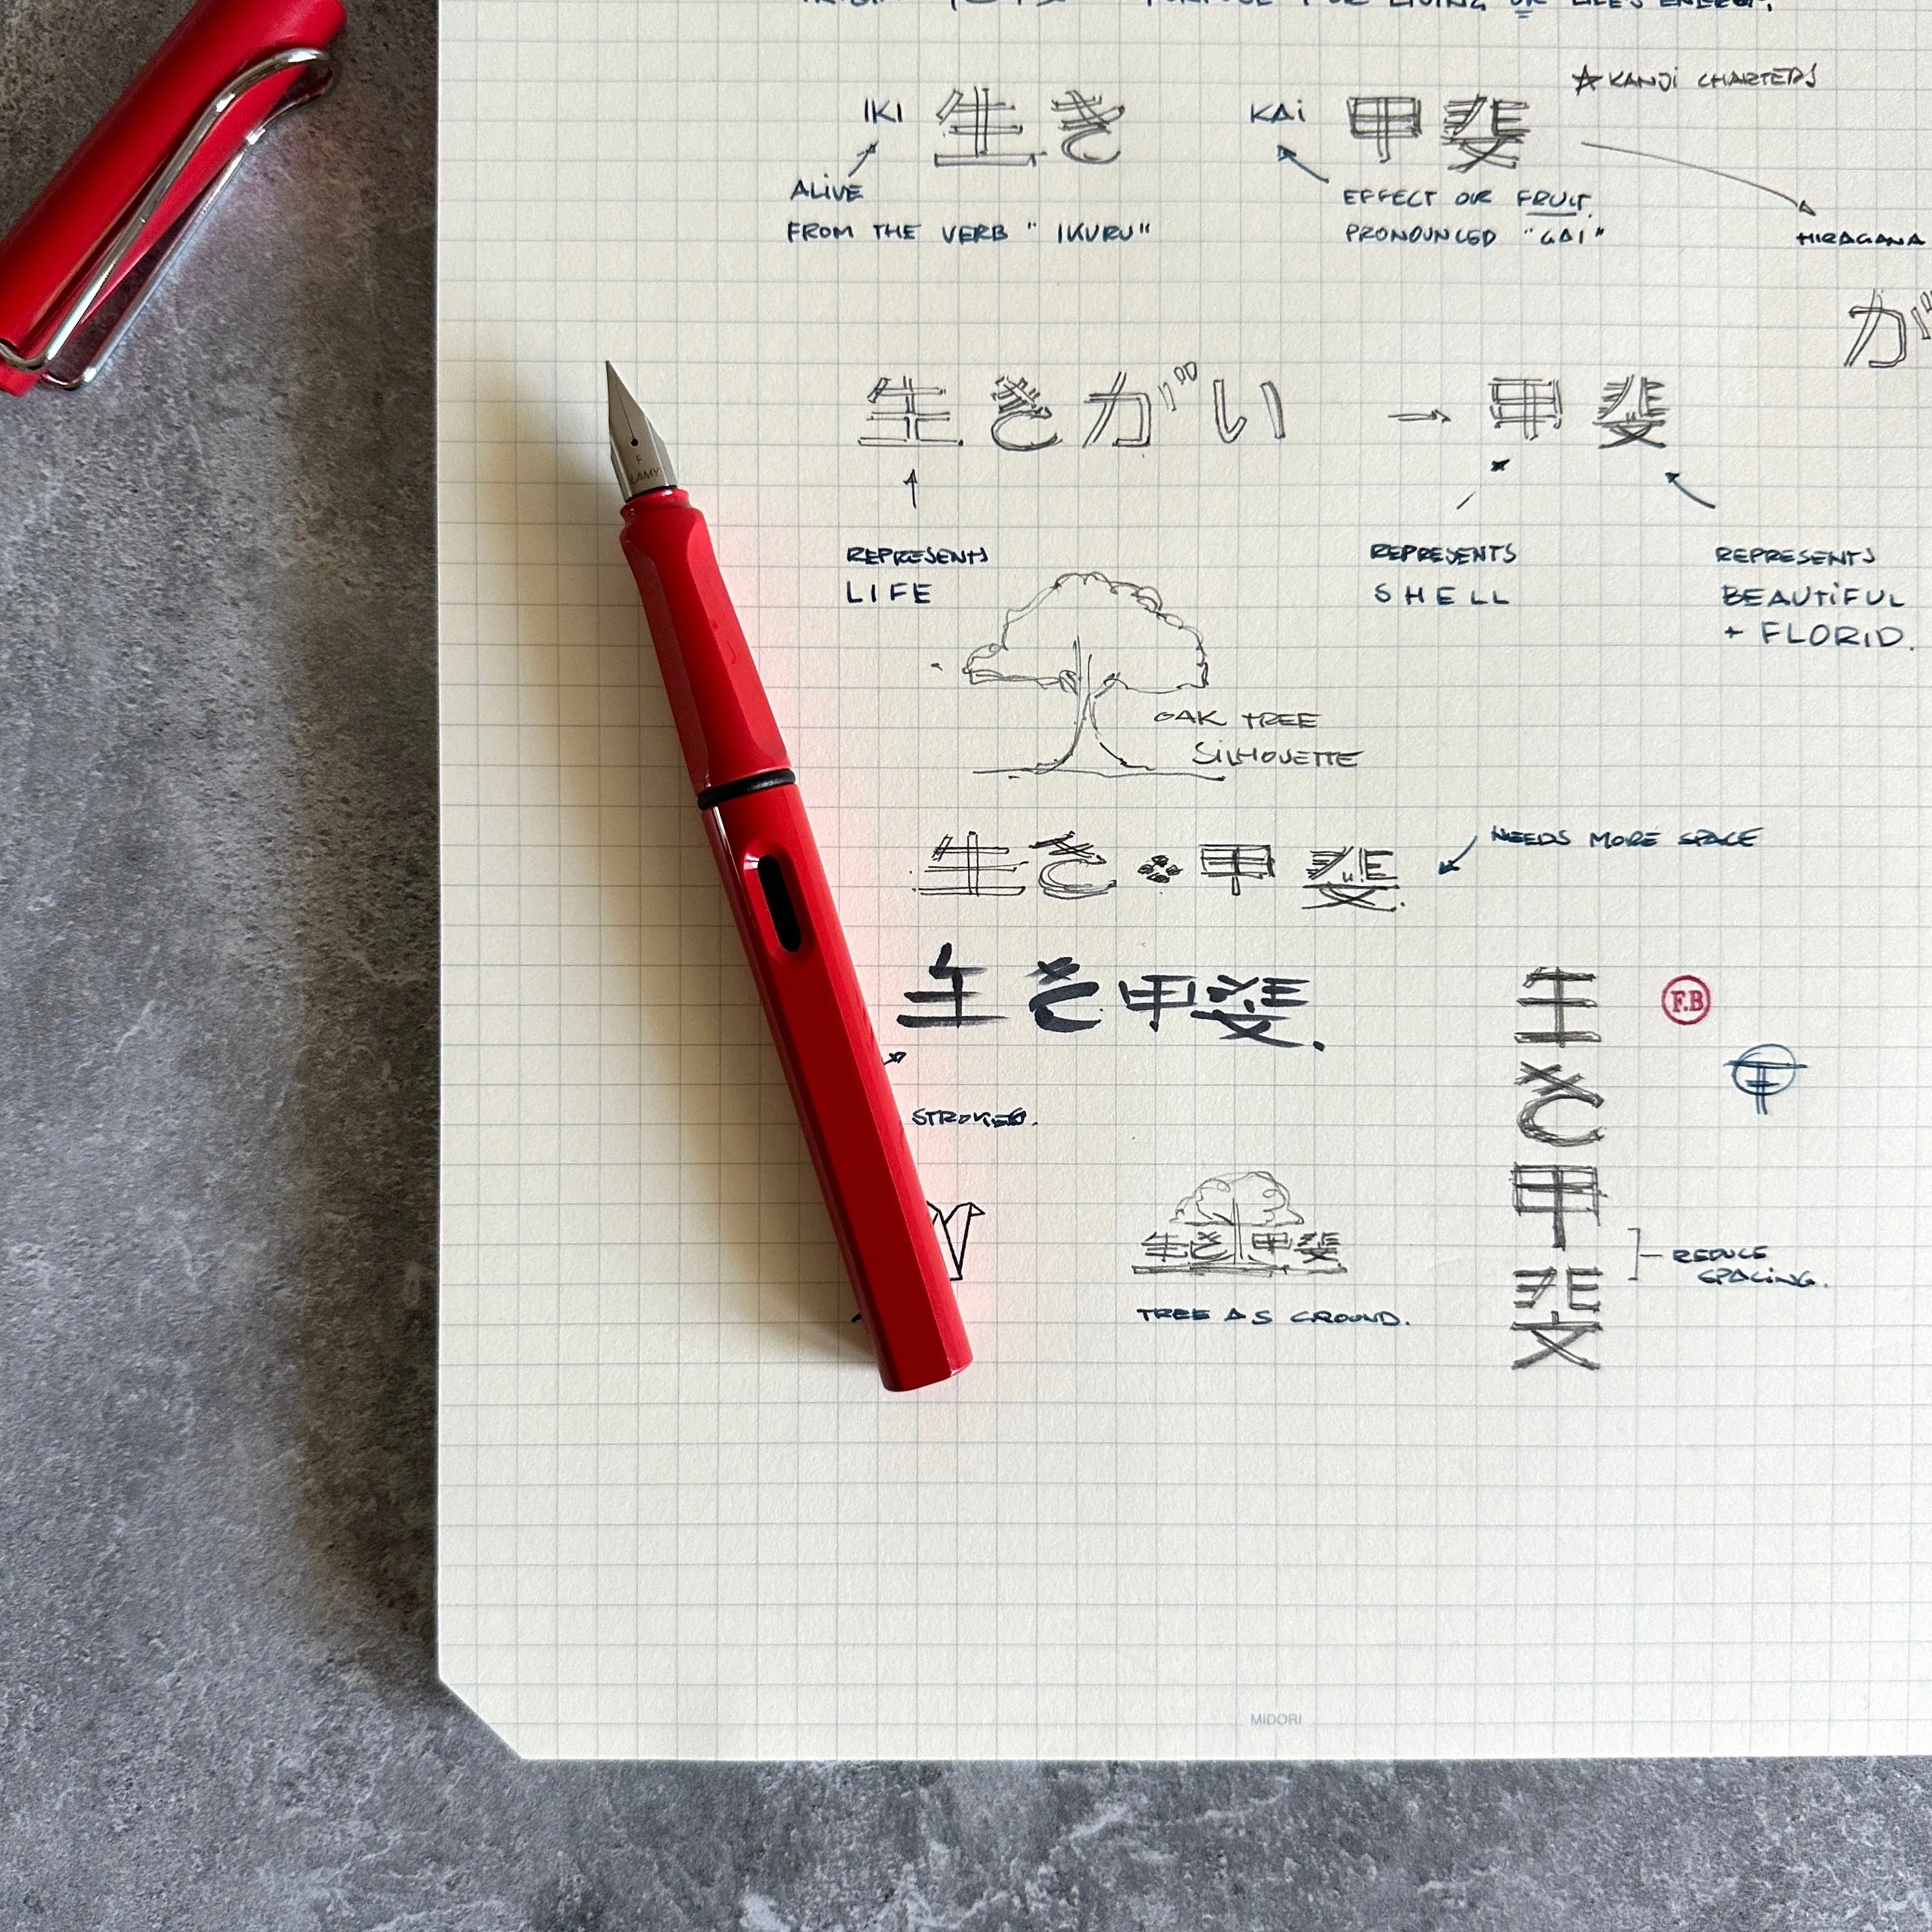 PURPOSE FOR LIVING OR LIFE'S ENERGY.
KANJI CHARTERS
IKI 生き
KAi 甲斐
ALiVE
FROM THE VERB "IKURU"
EFFECT OR FRUIT.
PRONOUNCED "GAI"
HIRAGANA
が
生きがい → 甲斐
F
LAMY
REPRESENTS
LIFE
REPRESENTS
SHELL
REPRESENTS
BEAUTiFUL
+ FLORID.
OAK TREE
SiLHOUETTE
生き 甲斐
NEEDS MORE SPACE
生き甲斐.
STROKES.
生き甲斐
F.B
生き甲斐
TREE AS GROUND.
REDUCE
SPACiNG.
MIDORI